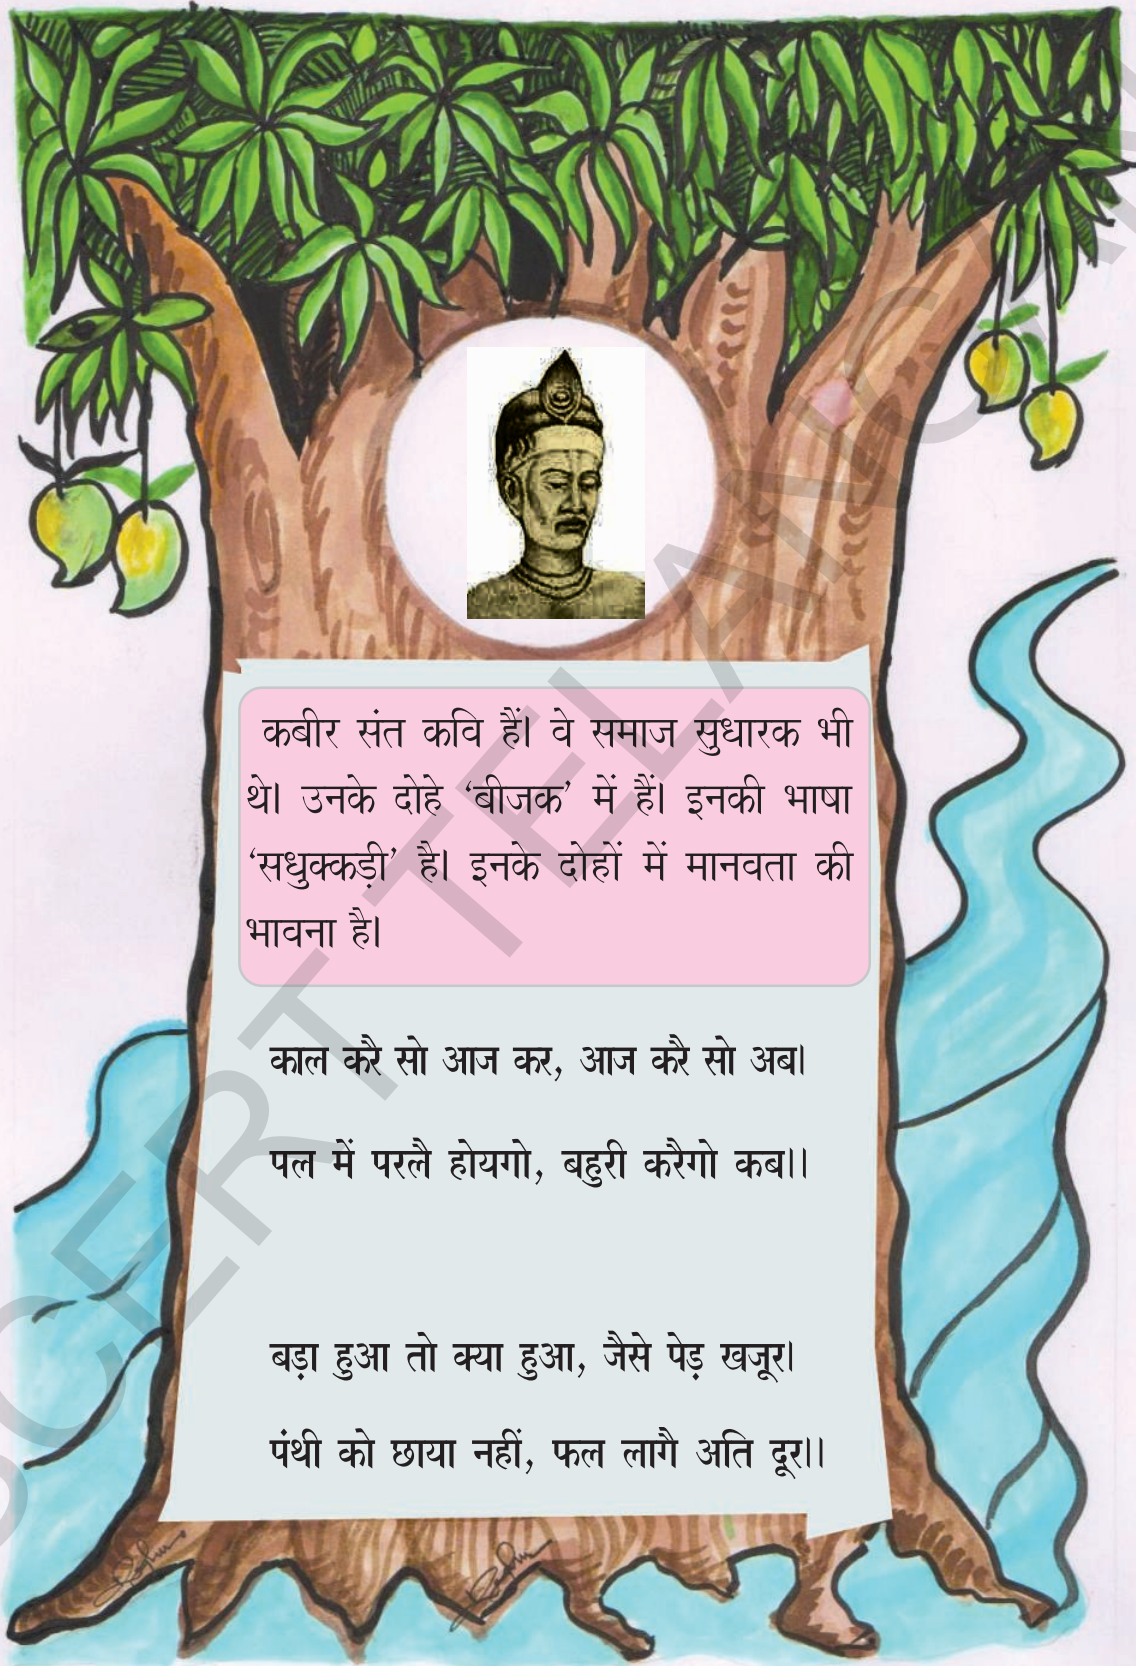 कबीर संत कवि हैं। वे समाज सुधारक भी
थे। उनके दोहे ‘बीजक’ में हैं। इनकी भाषा
‘सधुक्कड़ी’ है। इनके दोहों में मानवता की
भावना है।
काल करै सो आज कर, आज करै सो अब।
पल में परलै होयगो, बहुरी करैगो कब।।
बड़ा हुआ तो क्या हुआ, जैसे पेड़ खजूर।
पंथी को छाया नहीं, फल लागै अति दूर।।
SCERT TELANGANA